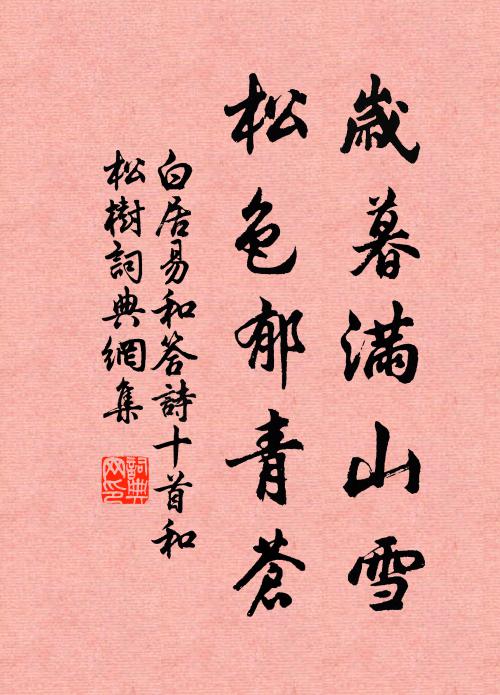 歲暮滿山雪
松色郁青蒼
白居易和答詩十首和
松樹詞典網集
詞典网印